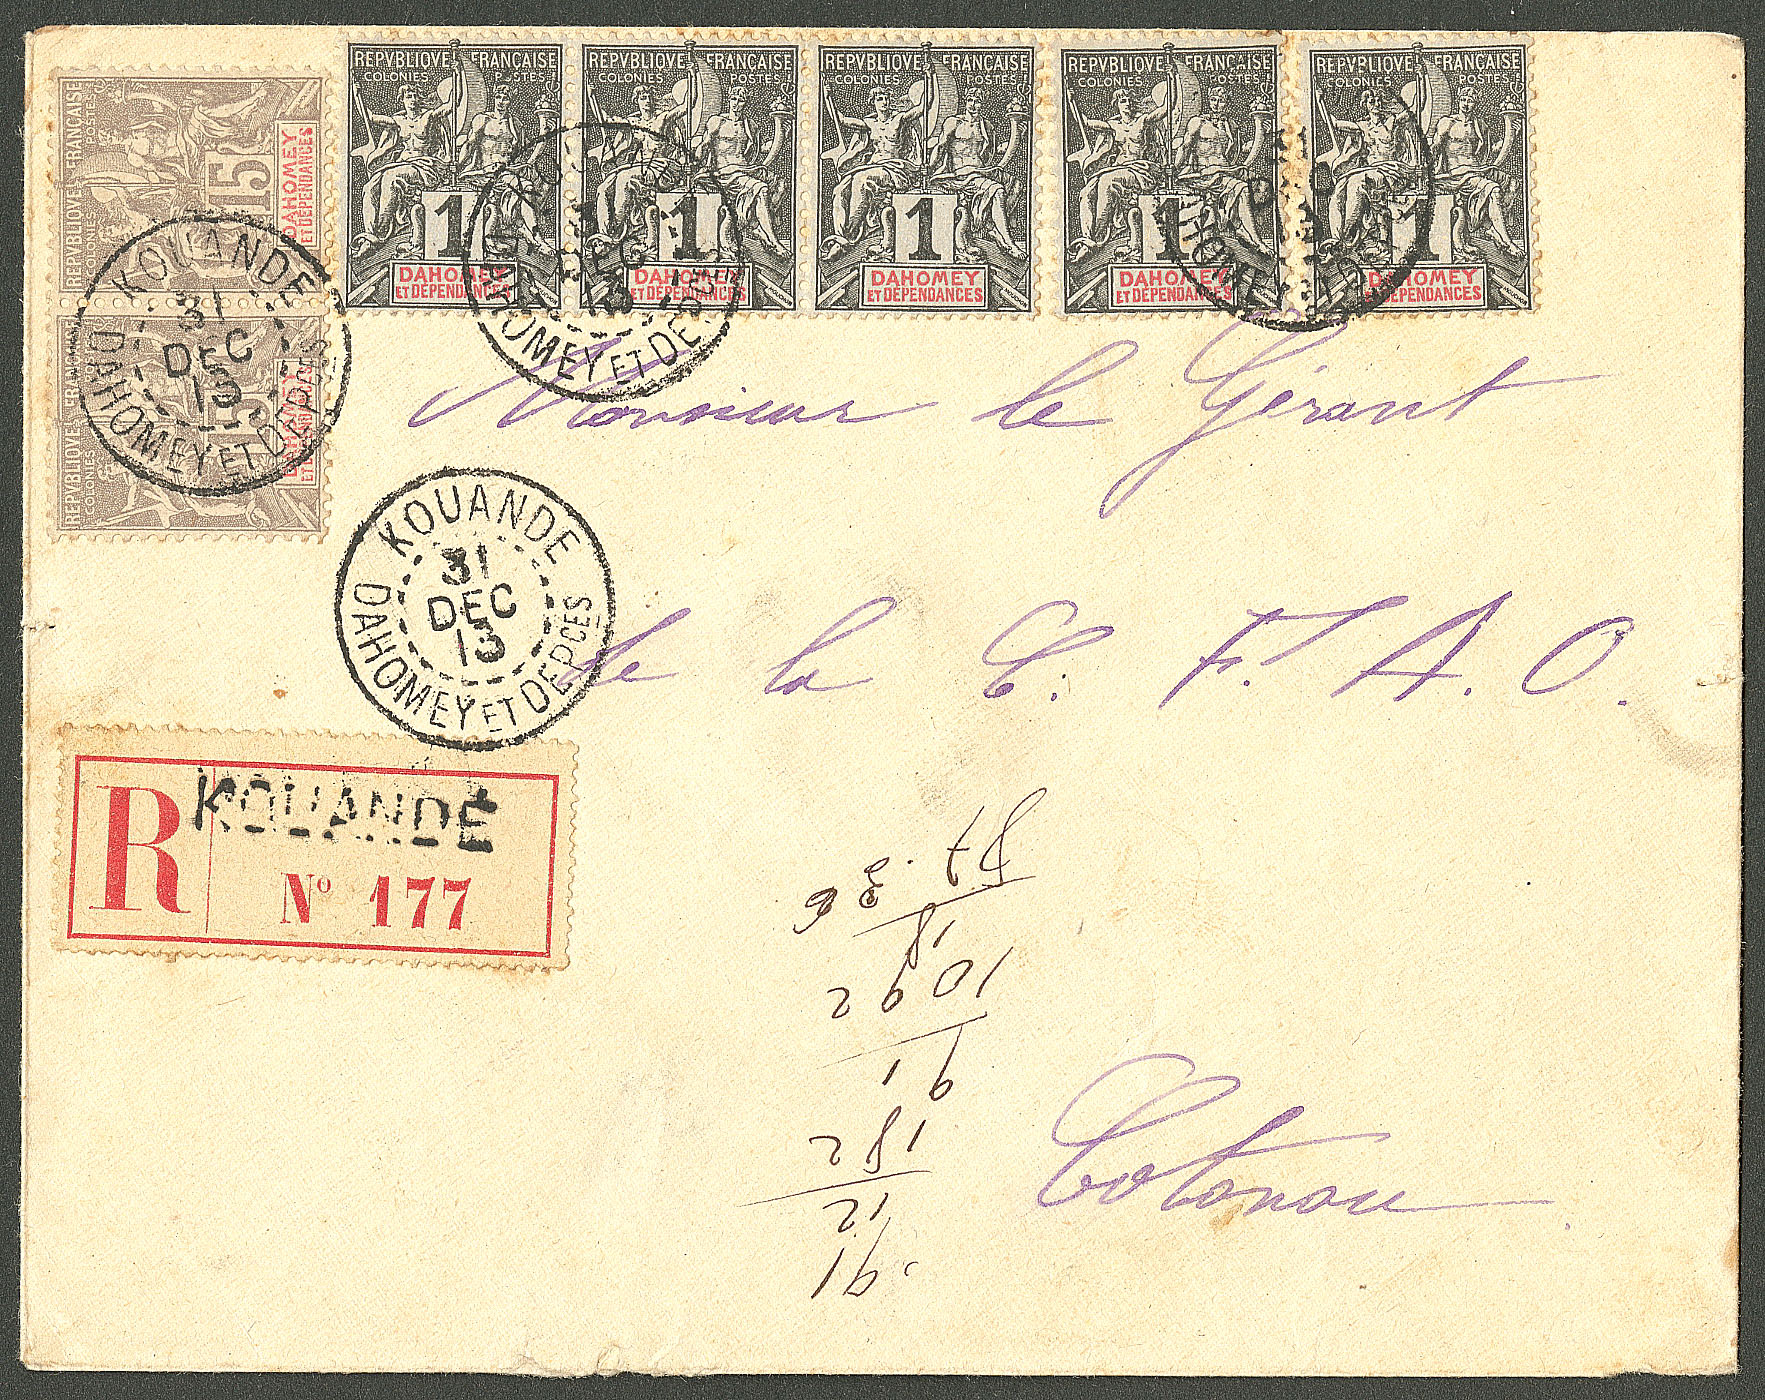 REPVBLIQVE FRANÇAISE
COLONIES POSTES
15
DAHOMEY
ET DÉPENDANCES
REPVBLIQVE FRANÇAISE
COLONIES
15
DAHOMEY
ET DÉPENDANCES
REPVBLIQVE FRANÇAISE
COLONIES POSTES
1
DAHOMEY
ET DÉPENDANCES
REPVBLIQVE FRANÇAISE
COLONIES POSTES
1
DAHOMEY
ET DÉPENDANCES
REPVBLIQVE FRANÇAISE
COLONIES POSTES
1
DAHOMEY
ET DÉPENDANCES
REPVBLIQVE FRANÇAISE
COLONIES POSTES
1
DAHOMEY
ET DÉPENDANCES
REPVBLIQVE FRANÇAISE
COLONIES POSTES
1
DAHOMEY
ET DÉPENDANCES
KOUANDE
31
DEC
13
DAHOMEY ET DEPCES
KOUANDE
DEC
13
DAHOMEY ET DEPCES
DAHOMEY
Monsieur le Gérant
KOUANDE
31
DEC
13
DAHOMEY ET DEPCES
de la C. F. A. O.
R
KOUANDÉ
Nº 177
Cotonou
91
12
182
91
1092
18